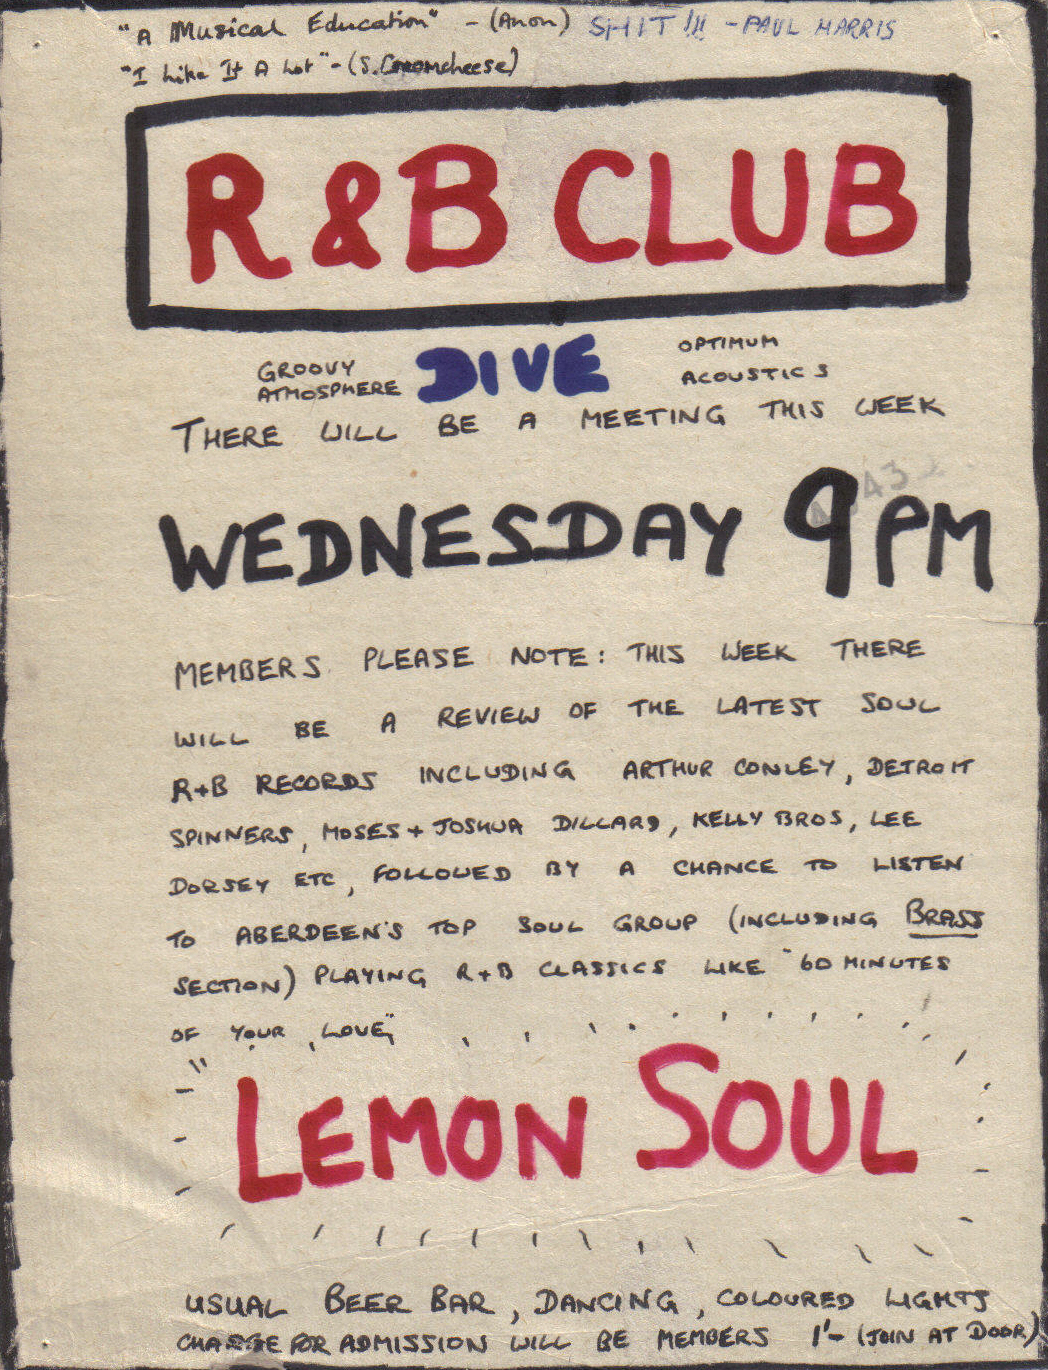 "A Musical Education" - (Anon) SHIT !!! - PAUL HARRIS
"I Like It A Lot" - (S. Creamcheese)
R & B CLUB
GROOVY ATMOSPHERE DIVE OPTIMUM ACOUSTICS
THERE WILL BE A MEETING THIS WEEK
WEDNESDAY 9PM
MEMBERS PLEASE NOTE: THIS WEEK THERE
WILL BE A REVIEW OF THE LATEST SOUL
R+B RECORDS INCLUDING ARTHUR CONLEY, DETROIT
SPINNERS, MOSES + JOSHUA DILLARD, KELLY BROS, LEE
DORSEY ETC, FOLLOWED BY A CHANCE TO LISTEN
TO ABERDEEN'S TOP SOUL GROUP (INCLUDING BRASS
SECTION) PLAYING R+B CLASSICS LIKE "60 MINUTES
OF YOUR LOVE",
"LEMON SOUL
USUAL BEER BAR, DANCING, COLOURED LIGHTS
CHARGE FOR ADMISSION WILL BE MEMBERS 1'- (JOIN AT DOOR)